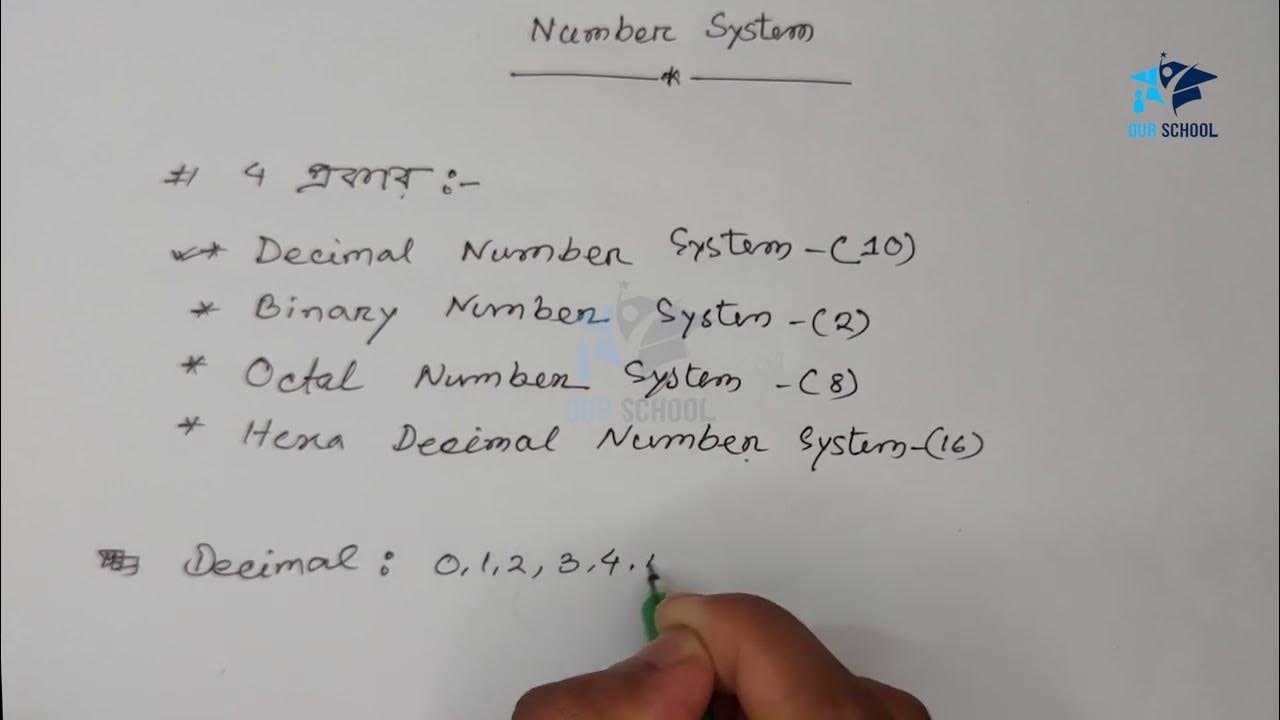 Number System
OUR SCHOOL
# 4 প্রকার :-
* Decimal Number System - (10)
* Binary Number System - (2)
* Octal Number System - (8)
OUR SCHOOL
* Hexa Decimal Number System - (16)
Decimal : 0, 1, 2, 3, 4,